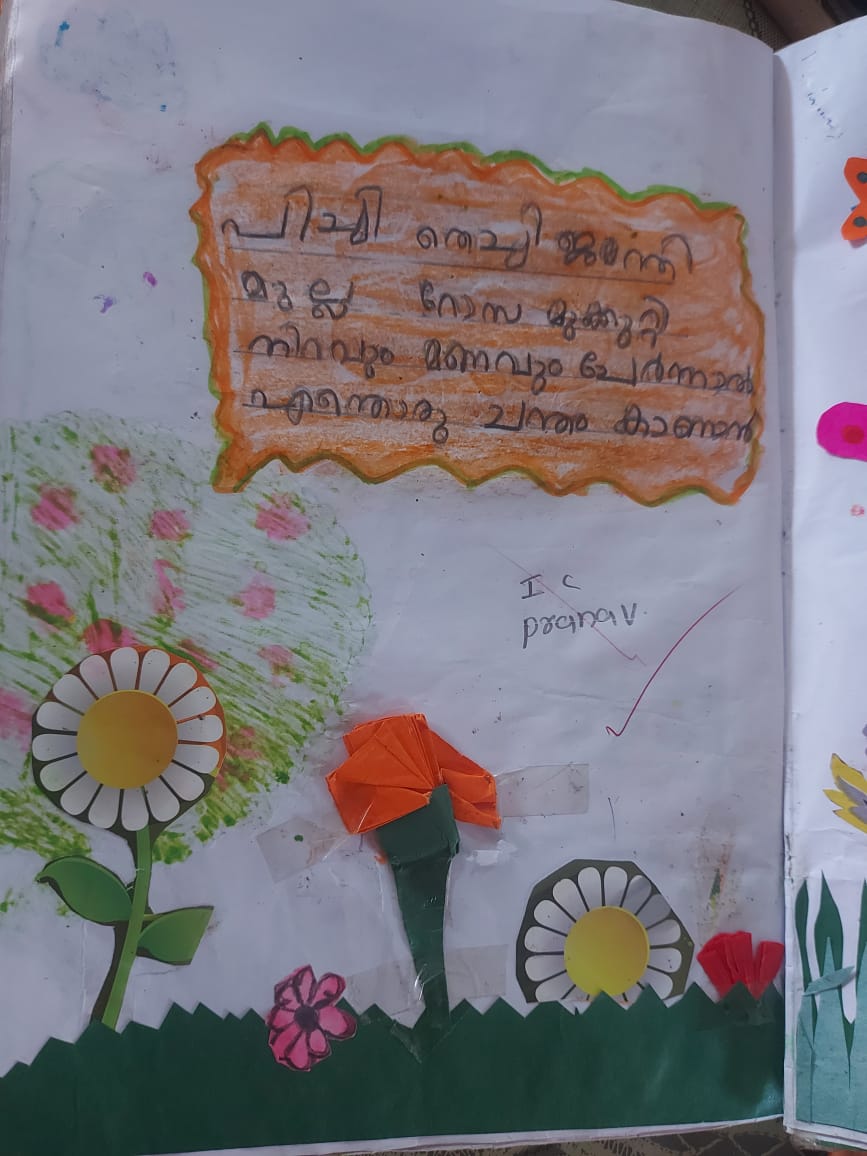 പിച്ചി തെച്ചി ജമന്തി
മുല്ല റോസ മുക്കുറ്റി
നിറവും മണവും ചേർന്നാൽ
എന്തൊരു ചന്തം കാണാൻ
I C
pranav.